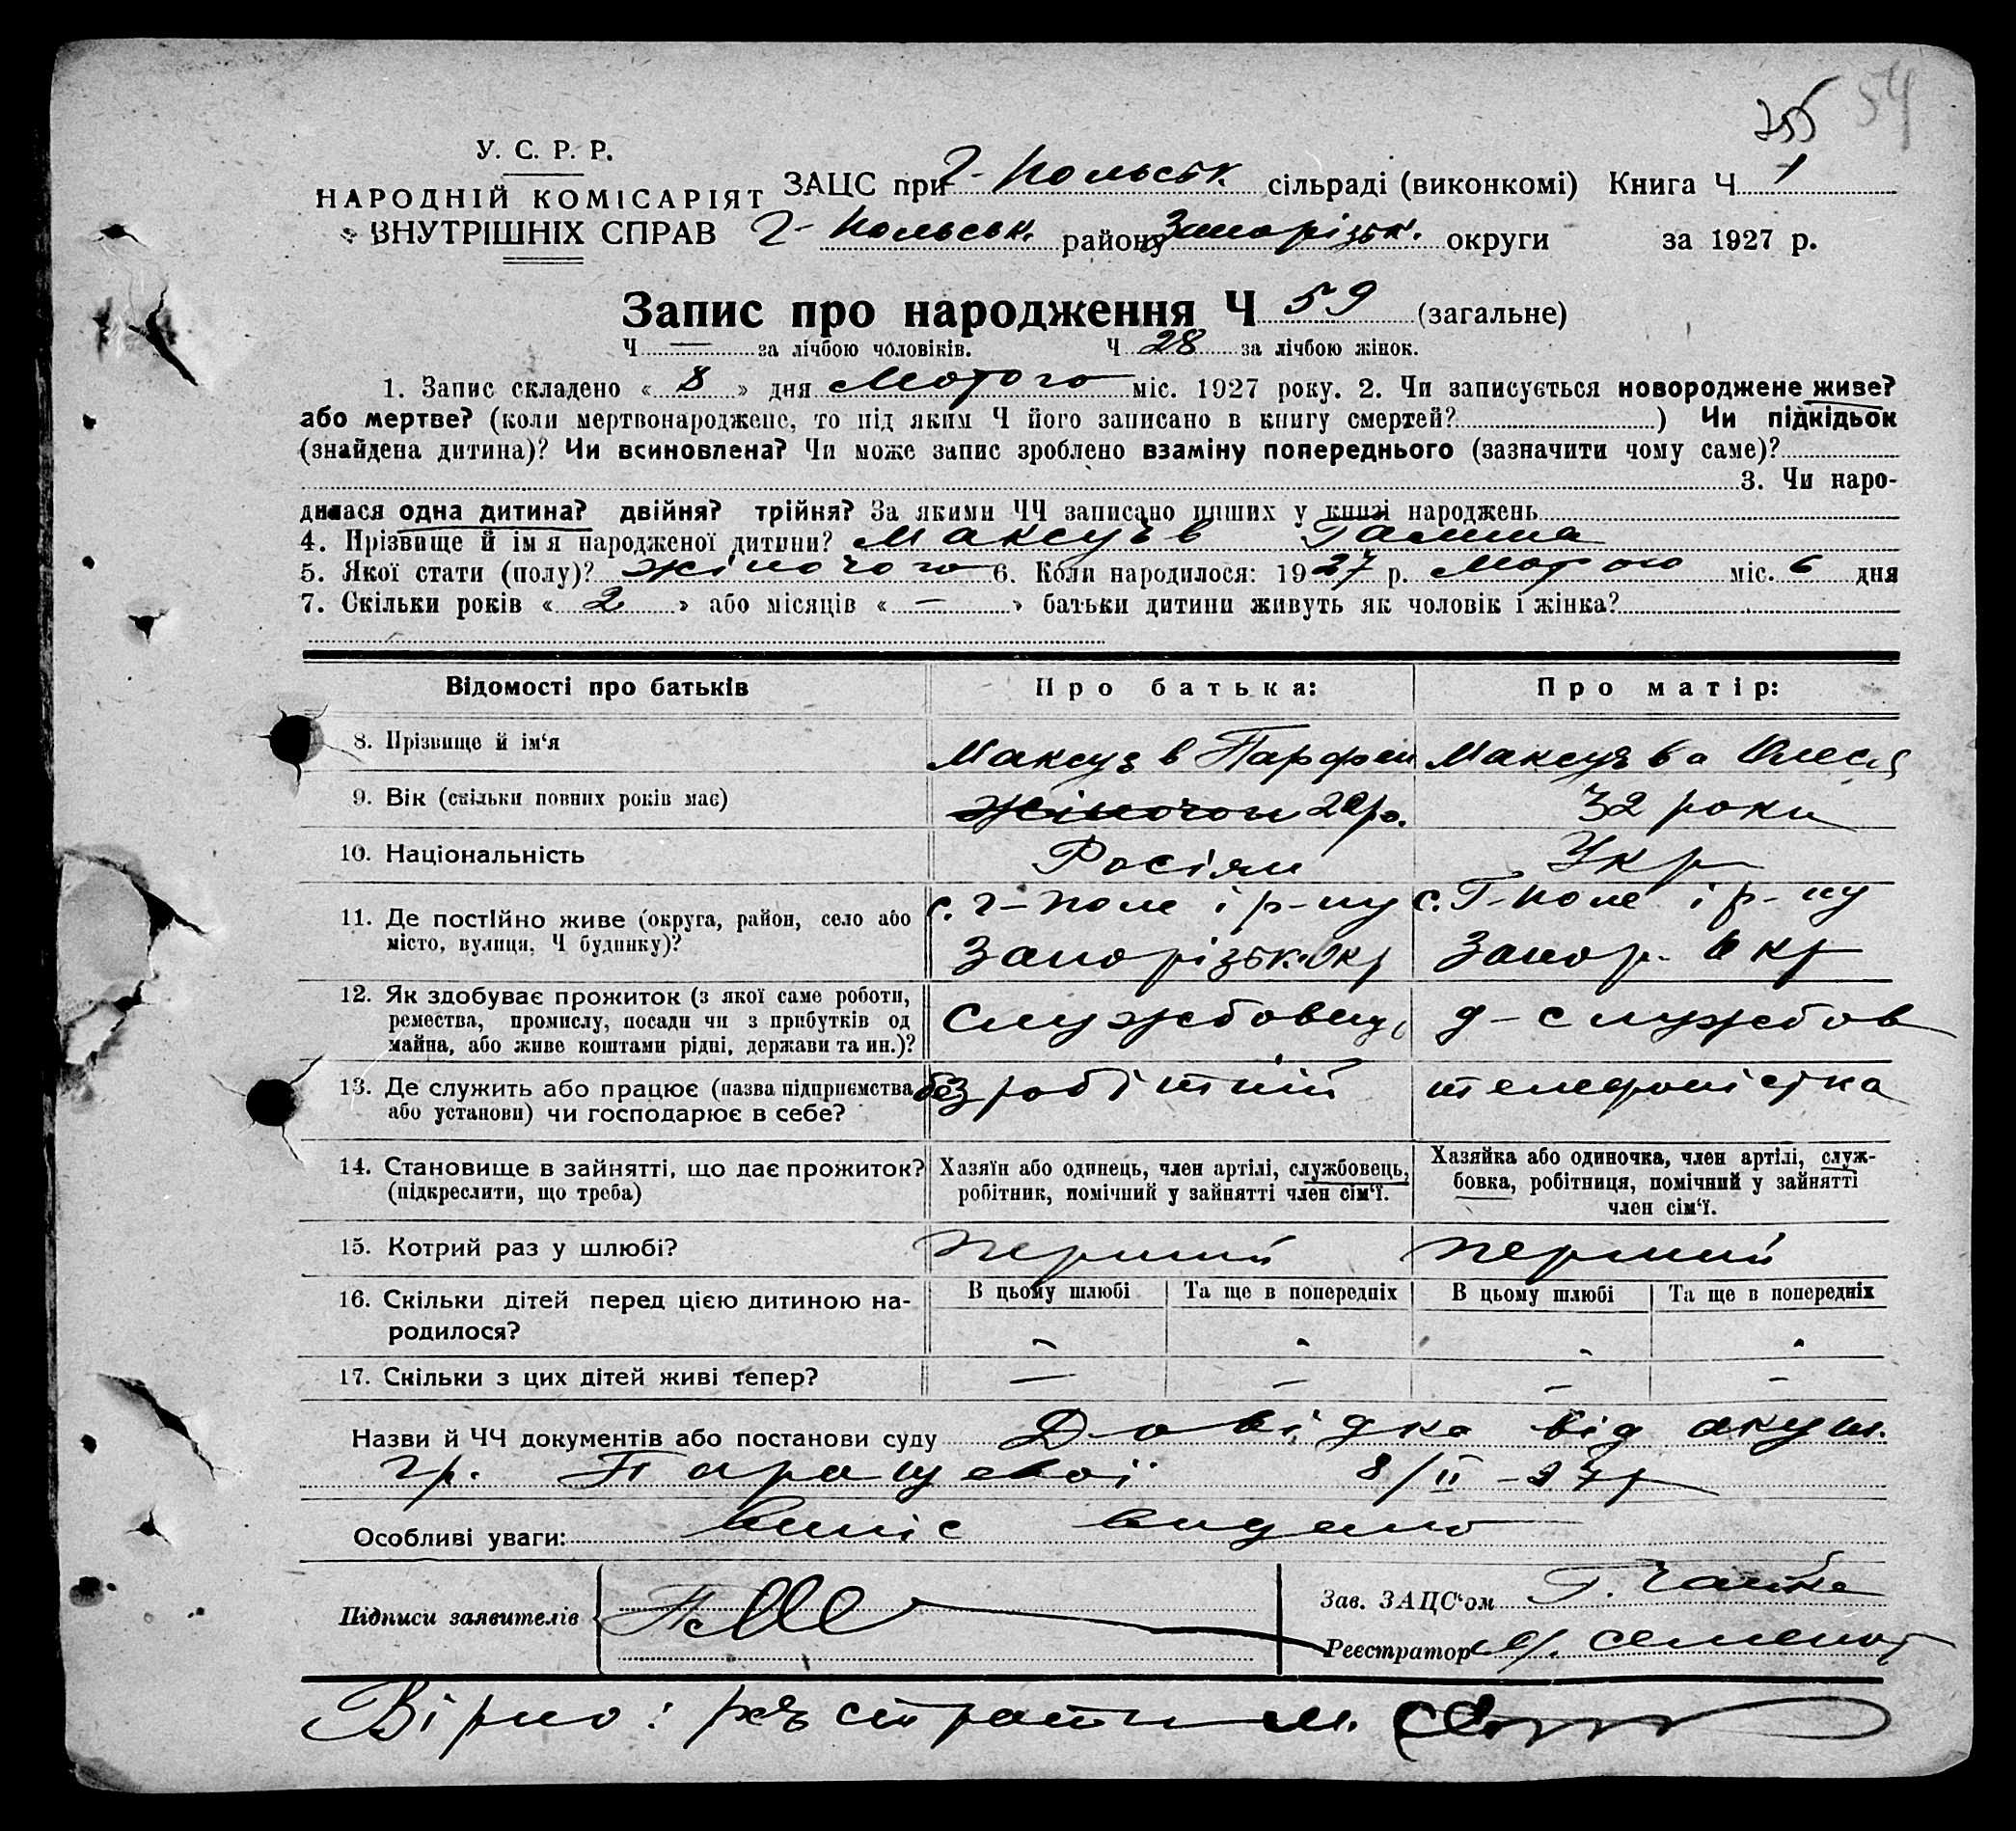 54
У. С. Р. Р.
НАРОДНІЙ КОМІСАРІЯТ
ВНУТРІШНІХ СПРАВ
ЗАЦС при Г-Польськ. сільраді (виконкомі) Книга Ч 1
Г-Польськ. району Запорізьк. округи за 1927 р.
Запис про народження Ч 59 (загальне)
Ч — за лічбою чоловіків. Ч 28 за лічбою жінок.
1. Запис складено « 8 » дня Лютого міс. 1927 року. 2. Чи записується новороджене живе?
або мертве? (коли мертвонароджене, то під яким Ч його записано в книгу смертей? ) Чи підкідьок
(знайдена дитина)? Чи всиновлена? Чи може запис зроблено взаміну попереднього (зазначити чому саме)?
3. Чи наро-
дилася одна дитина? двійня? трійня? За якими ЧЧ записано инших у книзі народжень
4. Прізвище й імя народженої дитини? Галина
5. Якої стати (полу)? жіночого 6. Коли народилося: 1927 р. Лютого міс. 6 дня
7. Скільки років « 2 » або місяців « — » батьки дитини живуть як чоловік і жінка?
Відомості про батьків Про батька: Про матір:
8. Прізвище й ім‘я Парфен Олеся
9. Вік (скільки повних років має) 32 роки
10. Національність Росіян Укр
11. Де постійно живе (округа, район, село або с. Г-Поле і р-ну с. Г-Поле і р-ну
місто, вулиця, Ч будинку)? Запорізьк. Окр Запор. Окр
12. Як здобуває прожиток (з якої саме роботи,
ремества, промислу, посади чи з прибутків од Службовець д-службов
майна, або живе коштами рідні, держави та ин.)?
13. Де служить або працює (назва підприємства безробітний телефоністка
або установи) чи господарює в себе?
14. Становище в зайнятті, що дає прожиток? Хазяїн або одинець, член артілі, службовець, Хазяйка або одиночка, член артілі, служ-
(підкреслити, що треба) робітник, помічний у зайнятті член сім‘ї. бовка, робітниця, помічний у зайнятті
член сім‘ї.
15. Котрий раз у шлюбі? перший перший
16. Скільки дітей перед цією дитиною на- В цьому шлюбі Та ще в попередніх В цьому шлюбі Та ще в попередніх
родилося? - - - -
17. Скільки з цих дітей живі тепер? — — — —
Назви й ЧЧ документів або постанови суду Довідка від акуш.
гр. 8/II-27 р
Особливі уваги: Випис видано
Підписи заявителів
Зав. ЗАЦС‘ом Г. Чайка
Реєстратор
Вірно: